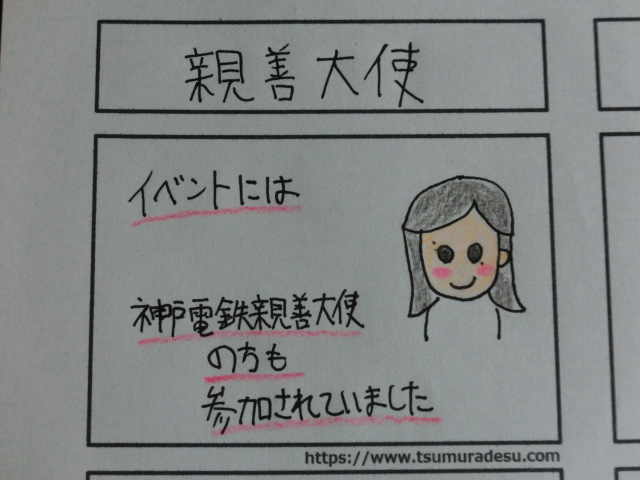 親善大使
イベントには
神戸電鉄親善大使
の方も
参加されていました
https://www.tsumuradesu.com